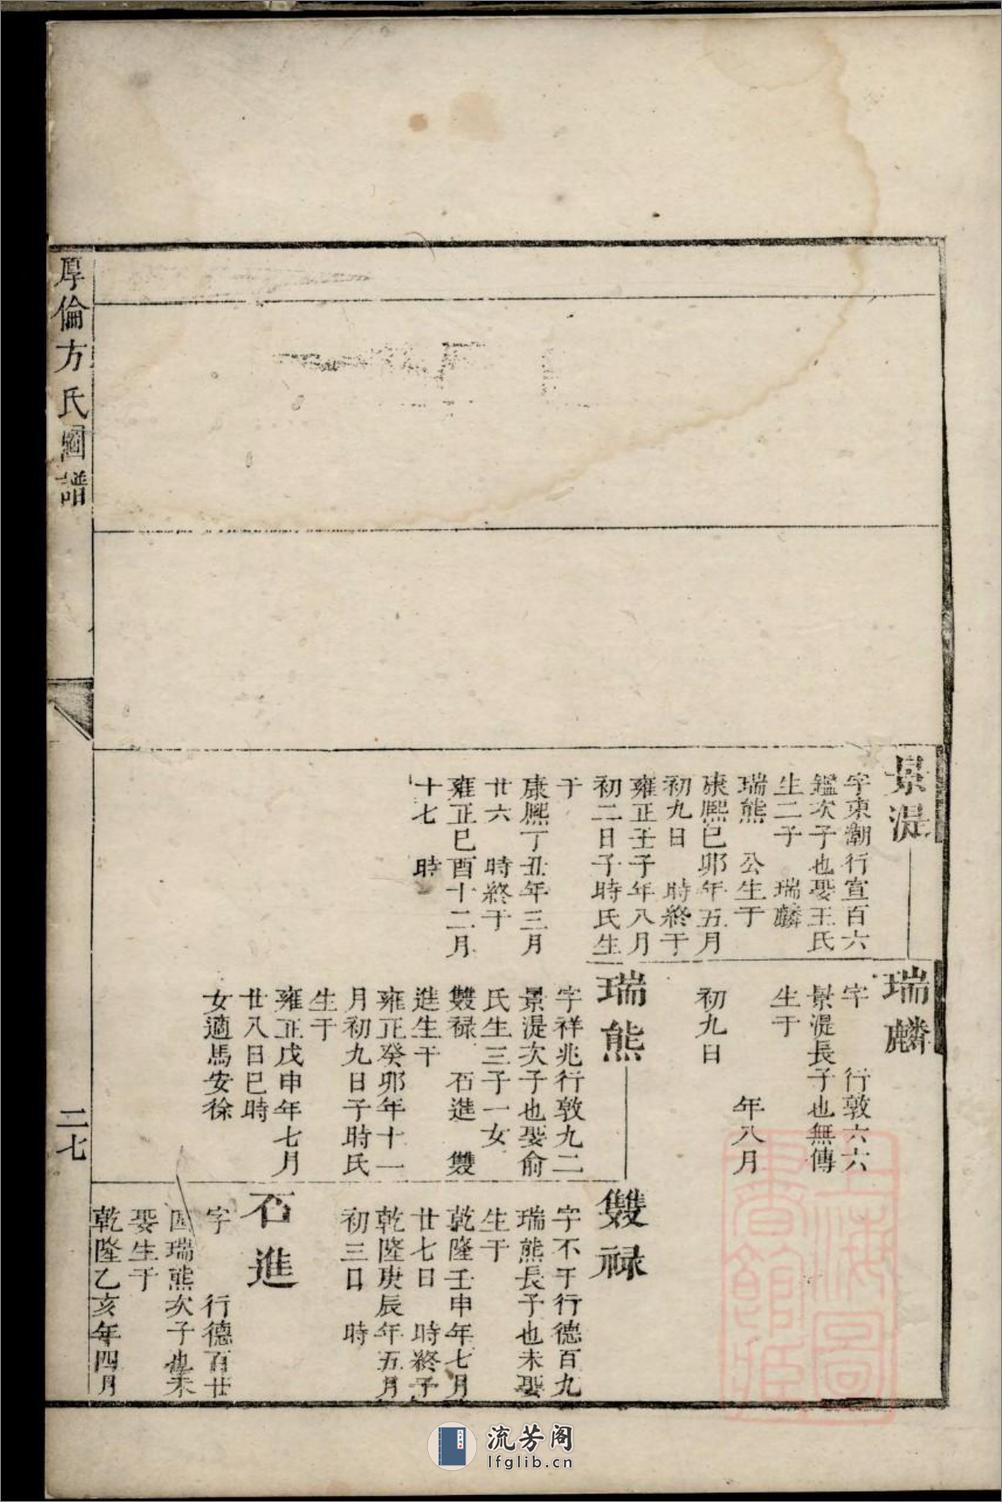 厚倫方氏圖譜
二七
景湜
字東潮行宣百六
鑑次子也娶王氏
生二子 瑞麟
瑞熊 公生于
康熙己卯年五月
初九日 時終于
雍正壬子年八月
初二日子時氏生
于
康熙丁丑年三月
廿六 時終于
雍正己酉十二月
十七 時
瑞麟
字 行敦六六
景湜長子也無傳
生于
年八月
初九日
瑞熊
字祥兆行敦九二
景湜次子也娶俞
氏生三子一女
雙祿 石進 雙
進生于
雍正癸卯年十一
月初九日子時氏
生于
雍正戊申年七月
廿八日巳時
女適馬安徐
雙祿
字不于行德百九
瑞熊長子也未娶
生于
乾隆壬申年七月
廿七日 時終于
乾隆庚辰年五月
初三日 時
石進
字 行德百廿
瑞熊次子也未
娶生于
乾隆乙亥年四月
上海圖書館藏
流芳阁
lfglib.cn